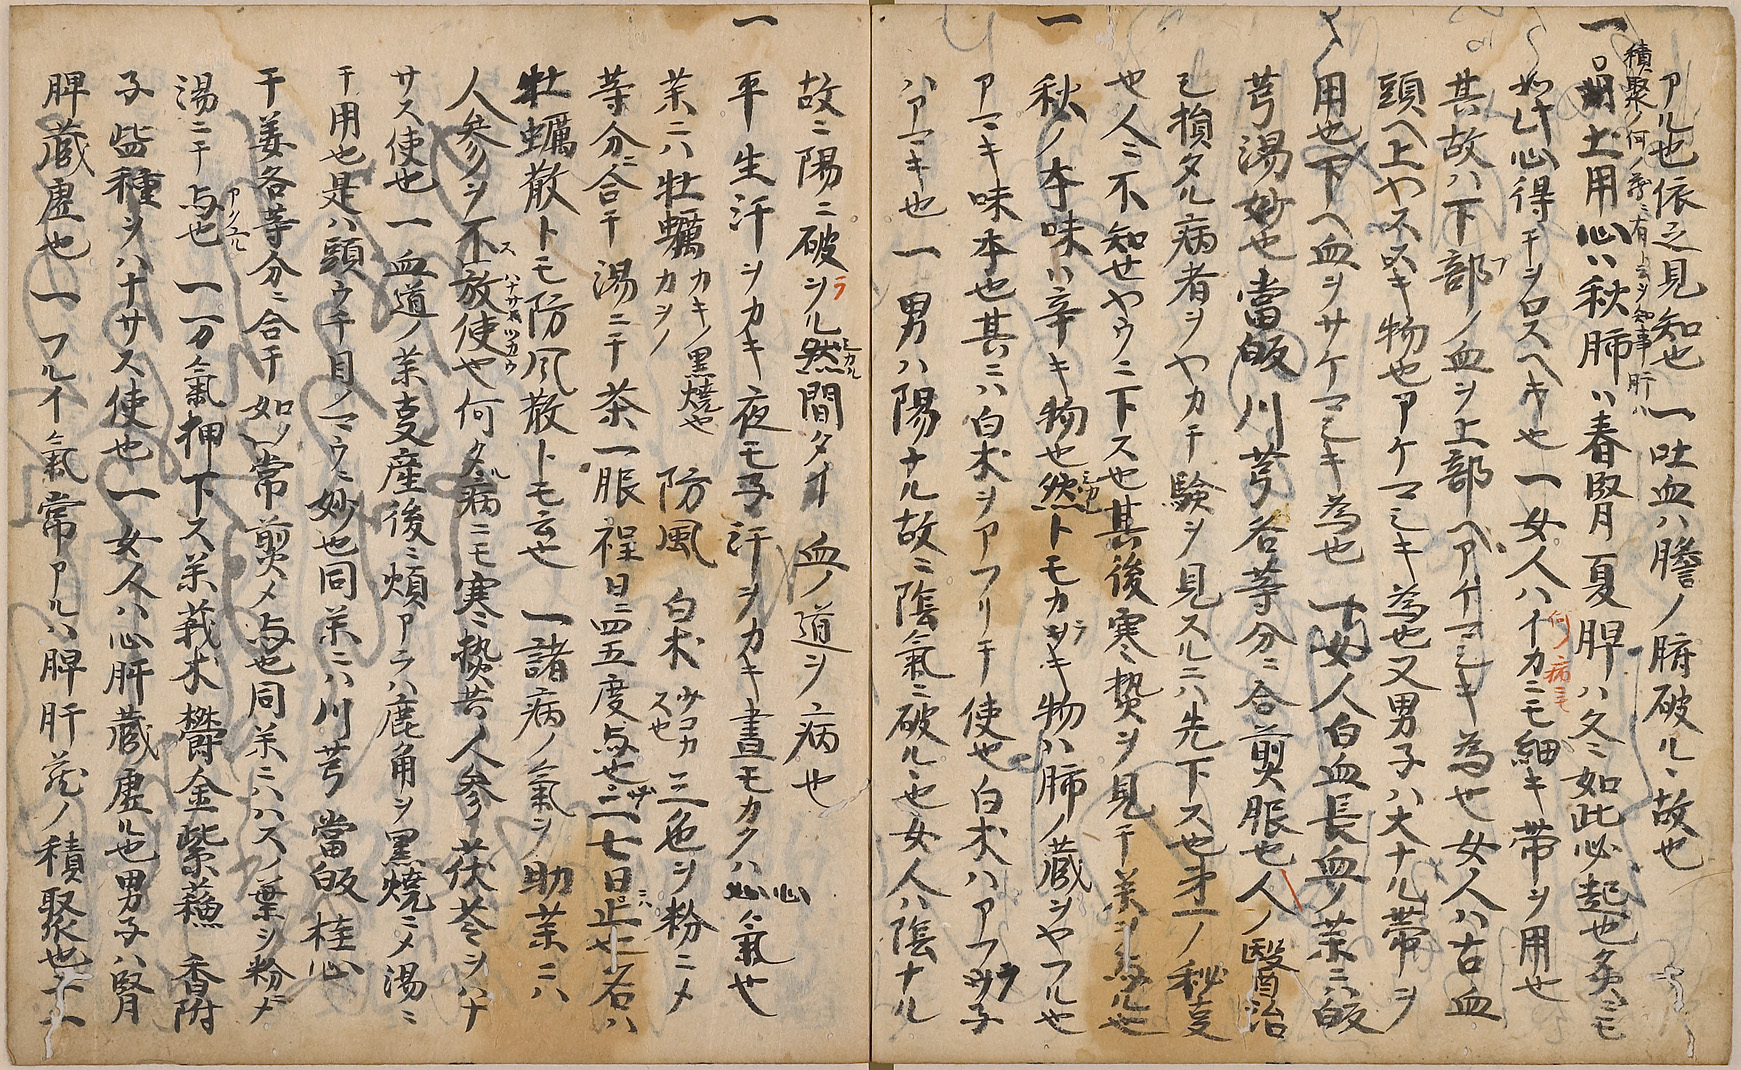 アル也依之見知也 一吐血ハ膽ノ腑破ル、故也
積聚ノ何ノ蔵ニ有ト云ヲ知事 肝ハ
一 四土用心ハ秋肺ハ春腎夏脾ハ冬ニ如此必起也灸ニモ
如此心得テヲロスヘキ也 一女人ハイカニモ細キ帯ヲ用也
何ノ病ニモ
其故ハ下部ノ血ヲ上部ヘアケマシキ為也女人ハ古血
頭ヘ上ヤスキ物也アケマシキ為也又男子ハ大ナル帯ヲ
用也下ヘ血ヲサケマシキ為也 一女人白血長血ノ薬ニハ皈
芎湯妙也當皈川芎各等分ニ合煎服也人ノ醫治
シ損タル病者ヲヤカテ驗ヲ見スルニハ先下ス也才一ノ秘支
也人ニ不知せヤウニ下ス也其後寒熱ヲ見テ薬ヲ与ル也
一 秋ノ本味ハ辛キ物也然トモカラキ物ハ肺ノ蔵ヲヤフル也
アマキ味本也其ニハ白朮ヲアフリテ使也白朮ハアフラ子
ハアマキ也 一男ハ陽ナル故ニ陰氣ニ破ル、也女人ハ陰ナル
故ニ陽ニ破ラル然間タイ血ノ道ヲ、病也
一 平生汗ヲカキ夜モ子汗ヲカキ晝モカクハ心氣也
薬ニハ牡蠣カキノカラノ黒焼也 防風 白朮 ヲコカス也 三色ヲ粉ニメ
等分ニ合テ湯ニテ茶一服程日ニ四五度与也二七日ニハ止也若ハ
牡蠣散トモ防風散トモ云也 一諸病ノ氣ヲ助薬ニハ
人参ヲ不放使也何タル病ニモ寒熱共人参茯苓ヲハナ
サス使也 一血道ノ薬支産後ニ煩アラハ鹿角ヲ黒焼ニメ湯ニ
テ用也是ハ頭ウチ目ノマウニ妙也同薬ニハ川芎 當皈 桂心
干姜各等分ニ合テ如常煎メ与也同薬ニハハスノ葉ヲ粉メ
湯ニテ与也 一一万氣押下ス薬莪朮欝金紫蘓 香附
アタユル
子此種ヲハナサス使也 一女人ハ心肝蔵虚ル也男子ハ腎
脾蔵虚也 一フルイ氣常アルハ脾肝蔵ノ積聚也 一